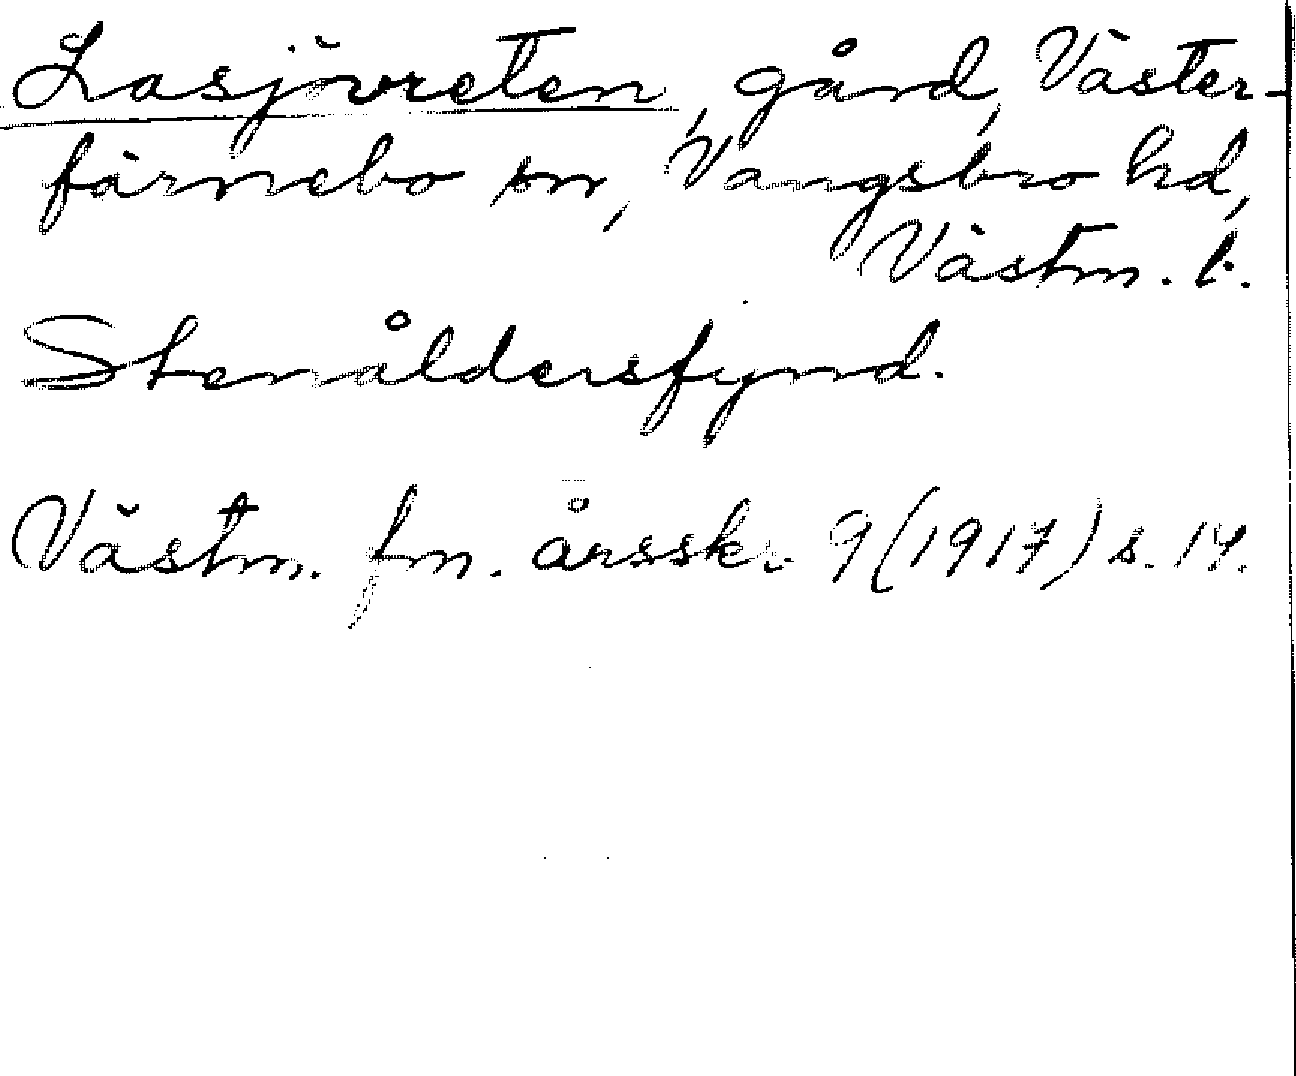 Lasjövreten, gård, Väster-
färnebo sn, Vangsbro hd,
Västm. l.
Stenåldersfynd.
Västm. fm. årsskr. 9 (1917) s. 14.